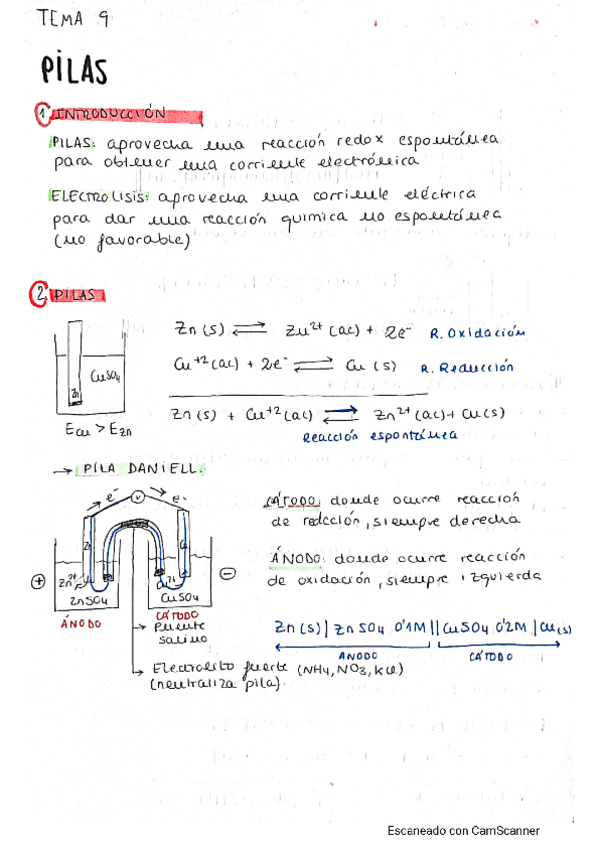 TEMA 9
PILAS
1. INTRODUCCIÓN
PILAS: aprovecha una reacción redox espontánea
para obtener una corriente electrónica
ELECTROLISIS: aprovecha una corriente eléctrica
para dar una reacción química no espontánea
(no favorable)
2. PILAS
Zn (s) ⇌ Zn²⁺ (ac) + 2e⁻ R. Oxidación
Cu⁺² (ac) + 2e⁻ ⇌ Cu (s) R. Reducción
Zn (s) + Cu⁺² (ac) ⇌ Zn²⁺ (ac) + Cu (s)
Reacción espontánea
CuSO₄
Zn
Ecu > Ezn
→ PILA DANIELL:
e⁻ V e⁻
Zn Cu
+ Zn²⁺ Cu²⁺ −
ZnSO₄ CuSO₄
ÁNODO CÁTODO
→ Puente
salino
→ Electrolito fuerte (NH₄, NO₃, KCl)
(neutraliza pila)
CÁTODO: donde ocurre reacción
de redcción, siempre derecha
ÁNODO: donde ocurre reacción
de oxidación, siempre izquierda
Zn (s) | ZnSO₄ 0'1M || CuSO₄ 0'2M | Cu (s)
ANODO CÁTODO
Escaneado con CamScanner